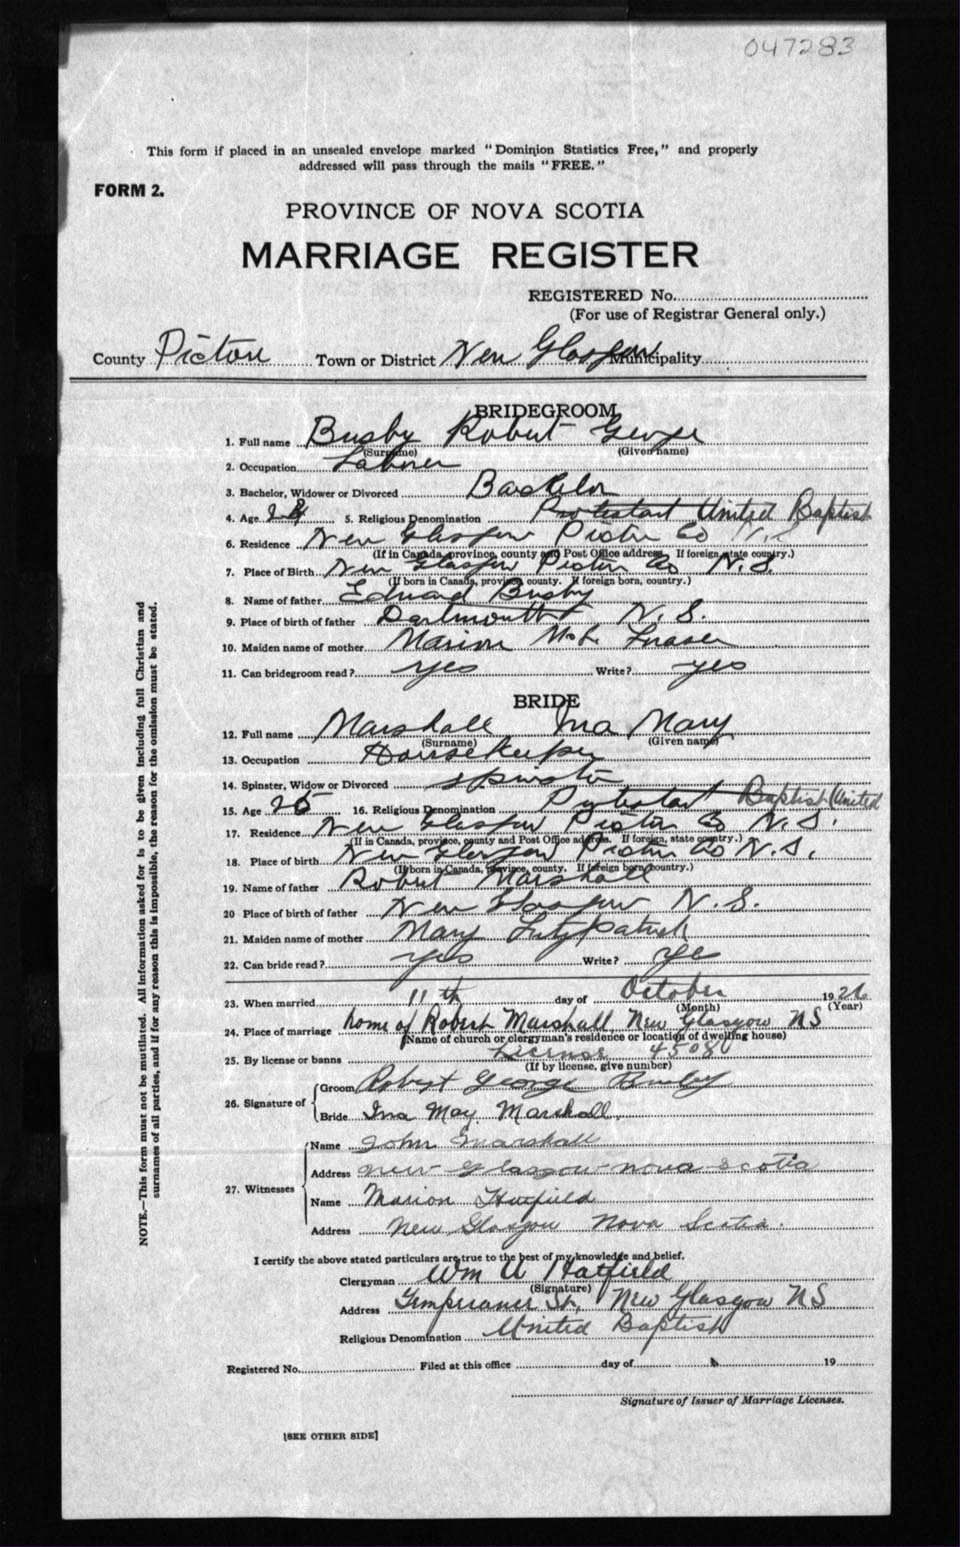 047283
This form if placed in an unsealed envelope marked "Dominion Statistics Free," and properly
addressed will pass through the mails "FREE."
FORM 2.
PROVINCE OF NOVA SCOTIA
MARRIAGE REGISTER
REGISTERED No.
(For use of Registrar General only.)
County Pictou Town or District New Glasgow Municipality
BRIDEGROOM
1. Full name Busby Robert George
(Surname) (Given name)
2. Occupation Laborer
3. Bachelor, Widower or Divorced Bachelor
4. Age 5. Religious Denomination Protestant United Baptist
6. Residence New Glasgow Pictou Co N.S
(If in Canada, province, county and Post Office address. If foreign, state country.)
7. Place of Birth New Glasgow Pictou Co N.S.
(If born in Canada, province, county. If foreign born, country.)
8. Name of father Edward Busby
9. Place of birth of father Dartmouth N.S.
10. Maiden name of mother Marion Fraser
11. Can bridegroom read? yes Write? yes
BRIDE
12. Full name Marshall Ina Mary
(Surname) (Given name)
13. Occupation Housekeeper
14. Spinster, Widow or Divorced spinster
15. Age 25 16. Religious Denomination Protestant Baptist (United
17. Residence New Glasgow Pictou Co N.S.
(If in Canada, province, county and Post Office address. If foreign, state country.)
18. Place of birth New Glasgow Pictou Co N.S.
(If born in Canada, province, county. If foreign born, country.)
19. Name of father Robert Marshall
20 Place of birth of father New Glasgow N.S.
21. Maiden name of mother Mary Fitzpatrick
22. Can bride read? yes Write? yes
23. When married 11th day of October 1926
(Month) (Year)
24. Place of marriage home of Robert Marshall, New Glasgow NS
(Name of church or clergyman's residence or location of dwelling house)
25. By license or banns License 4508
(If by license, give number)
26. Signature of
Groom Robert George Busby
Bride Ina May Marshall.
27. Witnesses
Name John Marshall
Address New Glasgow Nova Scotia
Name Marion Hatfield
Address New Glasgow Nova Scotia.
I certify the above stated particulars are true to the best of my knowledge and belief.
Clergyman Wm A Hatfield
(Signature)
Address Temperance St, New Glasgow NS
Religious Denomination United Baptist
Registered No. Filed at this office day of 19
Signature of Issuer of Marriage Licenses.
[SEE OTHER SIDE]
NOTE.—This form must not be mutilated. All information asked for is to be given including full Christian and
surnames of all parties, and if for any reason this is impossible, the reason for the omission must be stated.